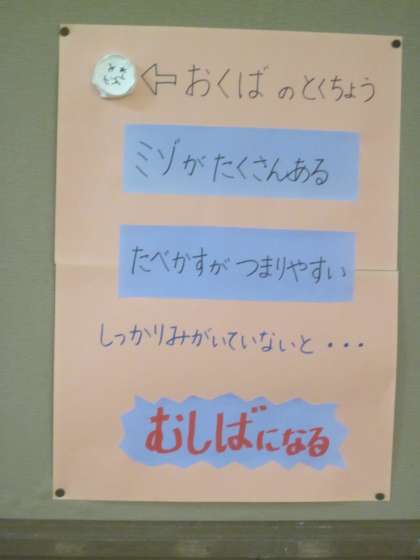 おくばのとくちょう
ミゾがたくさんある
たべかすがつまりやすい
しっかりみがいていないと・・・
むしばになる